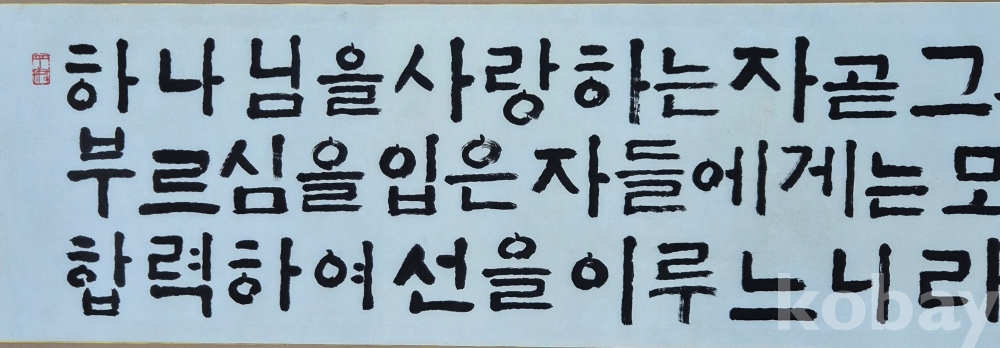 하나님을사랑하는자곧그
부르심을입은자들에게는모
합력하여선을이루느니라
kobay